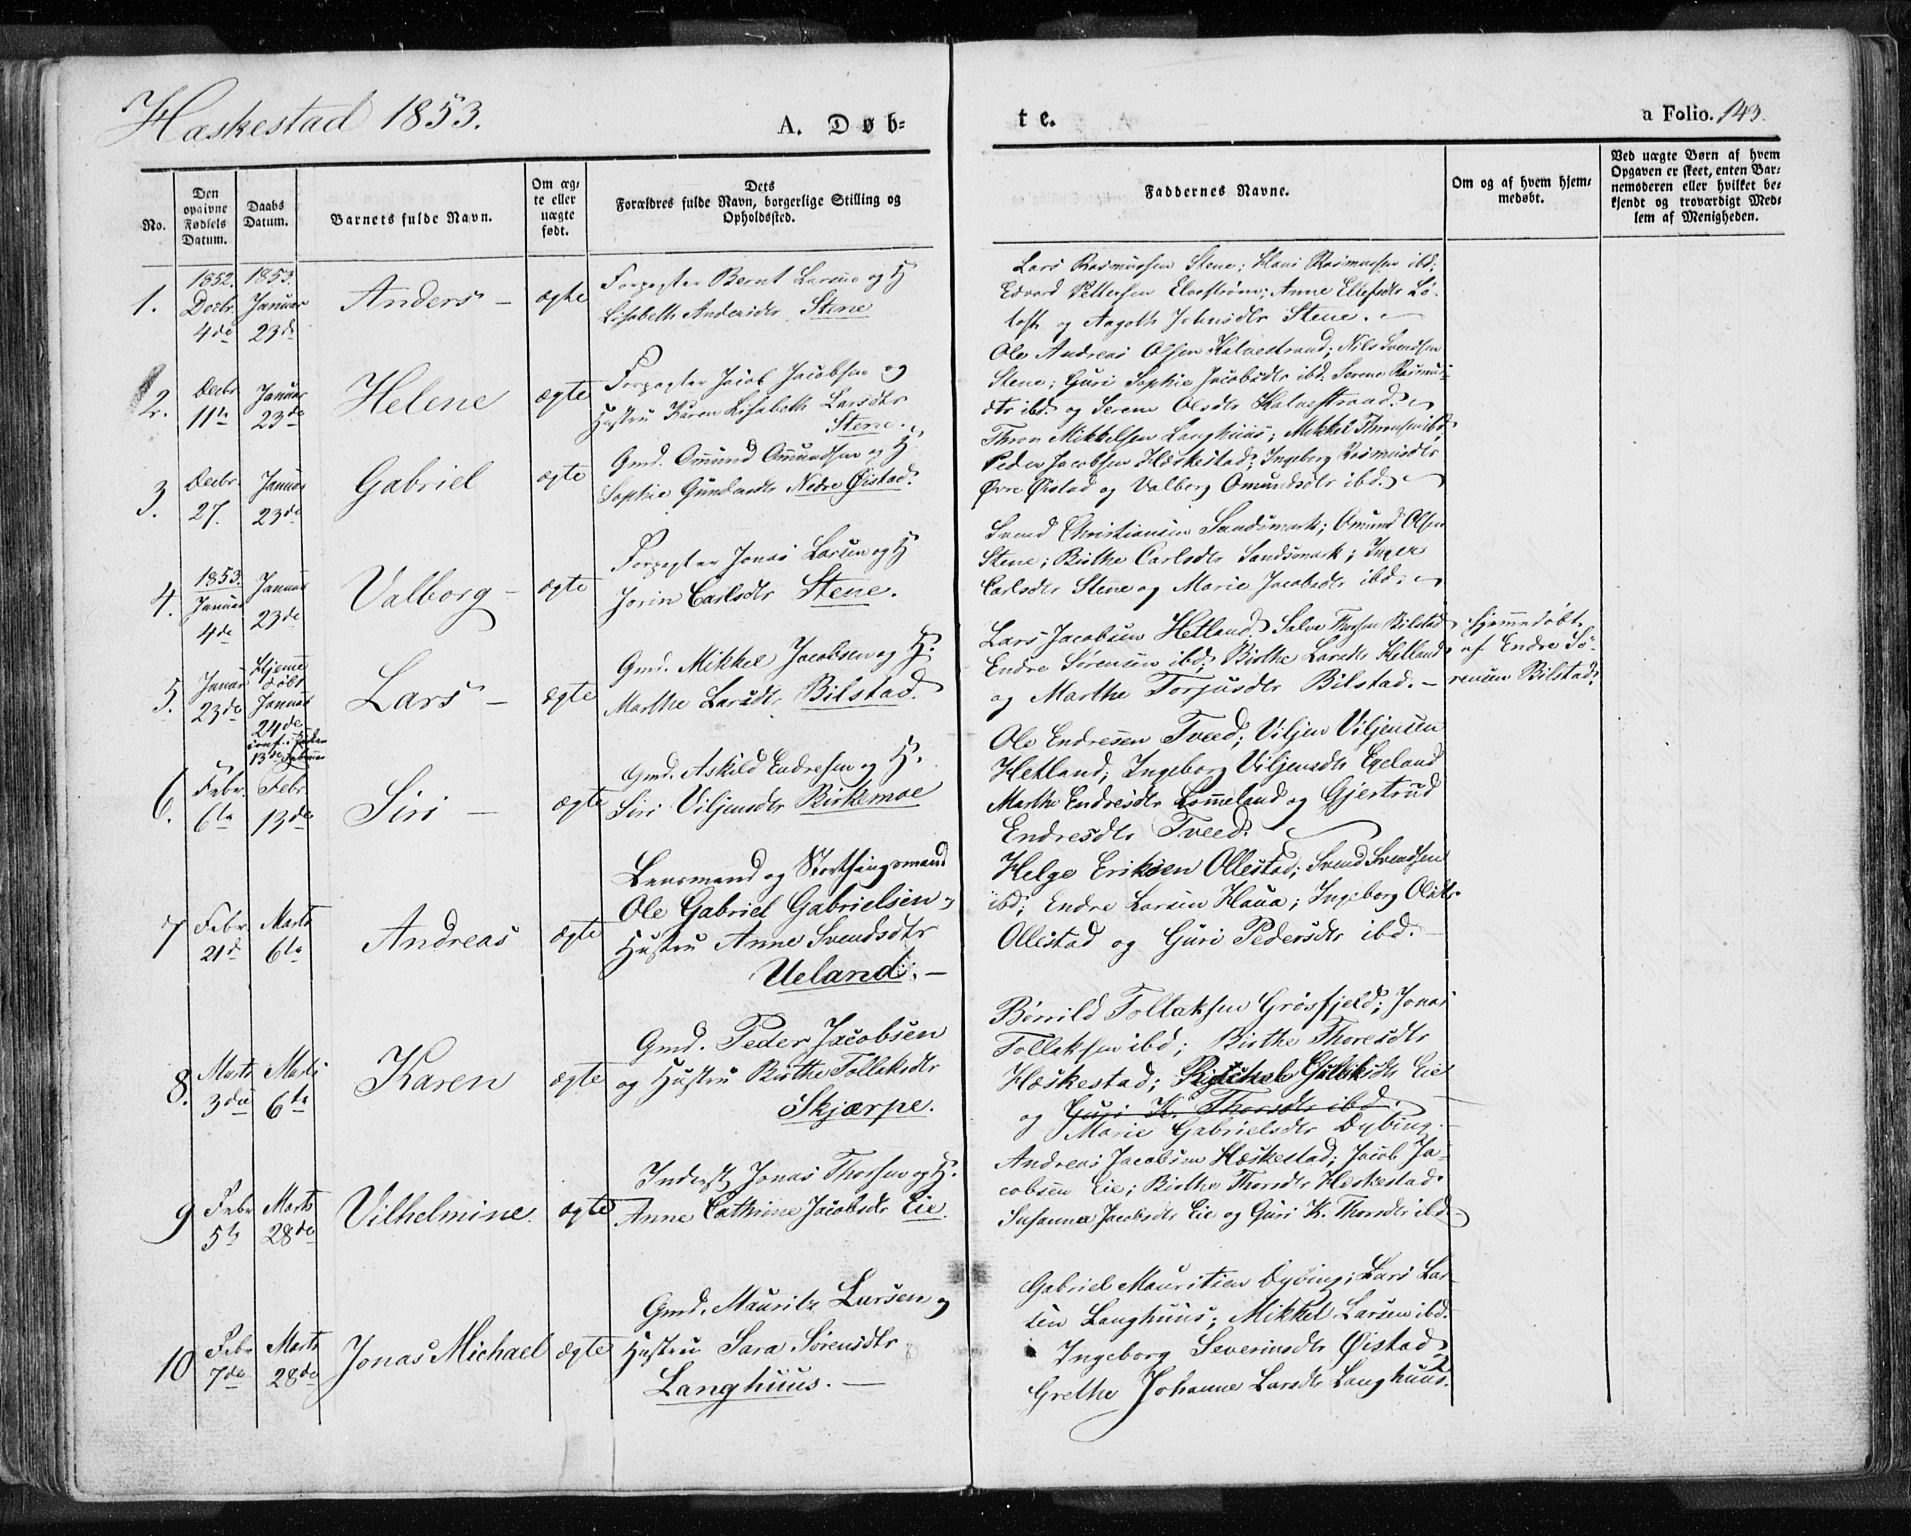 Hæskestad 1853.
A. Døb-
te.
a Folio. 143.
No.
Den opgivne Fødsels Datum.
Daabs Datum.
Barnets fulde Navn.
Om ægte eller uægte født.
Dets Forældres fulde Navn, borgerlige Stilling og Opholdssted.
Faddernes Navne.
Om og af hvem hjemmedøbt.
Ved uægte Børn af hvem Opgaven er skeet, enten Barnemoderen eller hvilket bekjendt og troværdigt Medlem af Menigheden.
1.
1852. Decbr 4de
1853. Januar 23de
Anders -
ægte
Forpagter Bernt Larsen og H
Lisabeth Andersdtr Stene
Lars Rasmussen Stene; Hans Rasmussen ibd;
Edvard Pettersen Elvestrøm; Anne Ellefsdtr Lø-
toft og Aagoth Johnsdtr Stene.
2.
Decbr 11te
Januar 23de
Helene
ægte
Forpagter Jacob Jacobsen og
Hustru Karen Lisabeth Larsdtr
Stene.
Ole Andreas Olsen Kalvestrand; Nils Svendsen
Stene; Guri Sophie Jacobsdtr ibd. Serene Rasmus-
dtr ibd. og Serene Olsdtr Kalvestrand.
3.
Decbr. 27.
Januar 23de
Gabriel
ægte
Gmd. Omund Omundsen og H
Sophie Gundersdtr Nedre Øistad.
Thron Mikkelsen Langhuus; Mikkel Thronsen ibd
Peder Jacobsen Hæskestad; Ingeborg Rasmusdtr
Øvre Øistad og Valborg Omundsdtr ibd.
4.
1853. Januar 4de
Januar 23de
Valborg -
ægte
Forpagter Jonas Larsen og H
Jorin Carlsdtr Stene.
Svend Christiansen Sandsmark; Omund Olsen
Stene; Birthe Carlsdtr Sandsmark; Inger
Carlsdtr Stene og Marie Jacobsdtr ibd.
5.
Januar 23de
Hjemme døbt Januar 24de
13de Februar
Lars -
ægte
Gmd. Mikkel Jacobsen og H.
Marthe Larsdtr Bilstad.
Lars Jacobsen Hetland. Salve Thorsen Bilstad
Endre Sørensen ibd; Birthe Larsdtr Hetland
og Marthe Torjusdtr Bilstad. -
Hjemmedøbt
af Endre Sø-
rensen Bilstad.
6.
Febr. 6te
Febr 13de
Siri -
ægte
Gmd. Askild Endresen og H.
Siri Viljensdtr Birkemoe
Ole Endresen Tveed; Viljen Viljensen
Hetland; Ingeborg Viljensdtr Egeland
Marthe Endresdtr Lomeland og Gjertrud
Endresdtr Tveed.
7
Febr 21de
Marts 6te
Andreas
ægte
Lensmand og Storthingsmand
Ole Gabriel Gabrielsen
Hustru Anne Svendsdtr
Ueland. -
Helge Eriksen Ollestad; Svend Svendsen
ibd; Endre Larsen Haua; Ingeborg Olsdtr
Ollestad og Guri Pedersdtr ibd. -
8.
Marts 3die
Marts 6te
Karen
ægte
Gmd. Peder Jacobsen
og Hustru Birthe Tollaksdtr
Skjærpe.
Bønild Tollaksen Grøsfjeld; Jonas
Tollaksen ibd; Birthe Thoresdtr
Hæskestad; Gulliksdtr Eie
og Guri K. Thorsdtr ibd.
Marie Gabrielsdtr Dybing.
9
Febr 5te
Marts 28de
Vilhelmine.
ægte
Inderst Jonas Thorsen og H.
Anne Cathrine Jacobsdtr Eie.
Andreas Jacobsen Hæskestad; Jacob Ja-
cobsen Eie; Birthe Thorsdtr Heskestad.
Susanna Jacobsdtr Eie og Guri K. Thorsdtr ibd
10
Febr 7de
Marts 28de
Jonas Michael
ægte
Gmd. Mauritz Larsen og
Hustru Sara Sørensdtr
Langhuus. -
Gabriel Mauritsen Dybing; Lars Lar-
sen Langhuus; Mikkel Larsen ibd.
Ingeborg Severinsdtr Øistad
Grethe Johanne Larsdtr Langhuus.